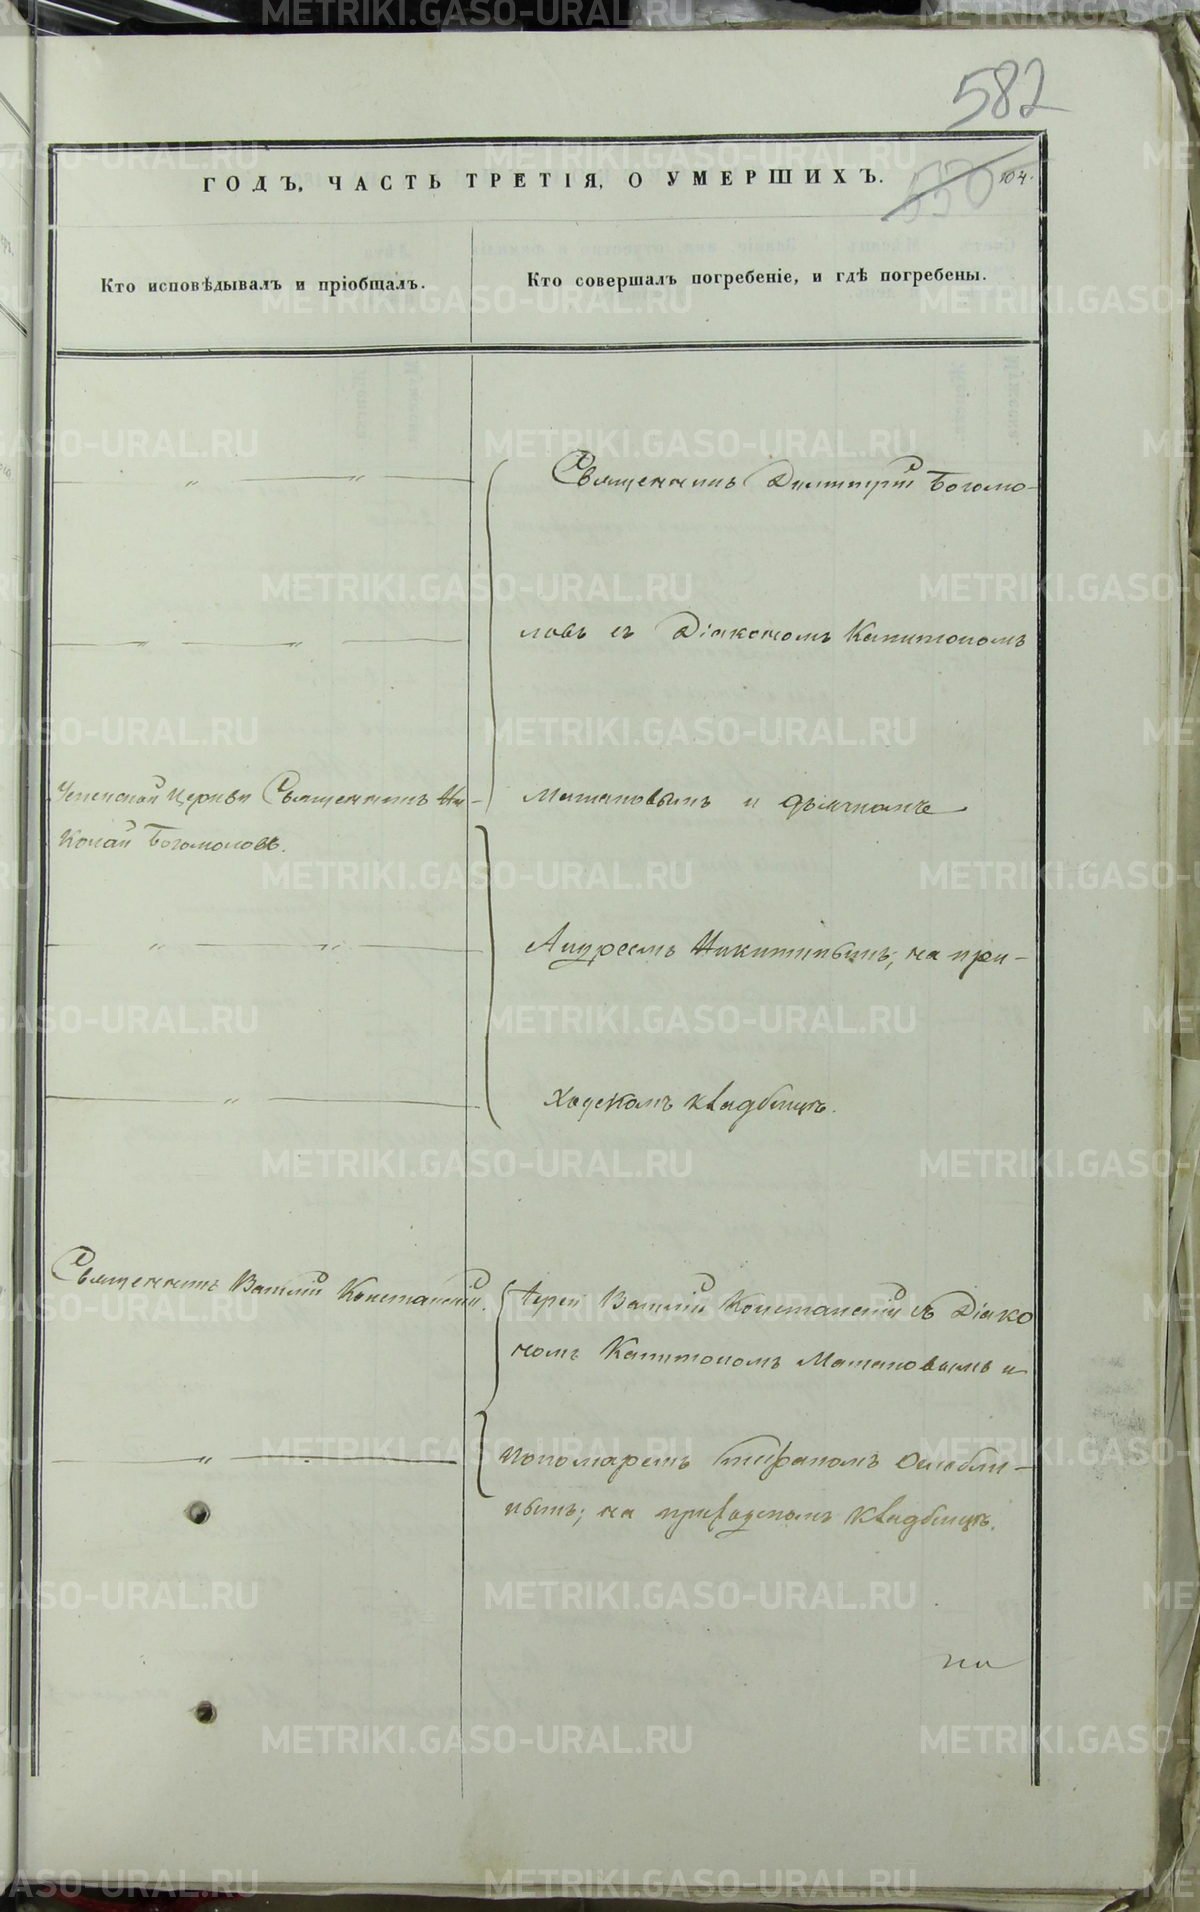 582
ГОДЪ, ЧАСТЬ ТРЕТІЯ, О УМЕРШИХЪ.
550 104.
Кто исповѣдывалъ и пріобщалъ.
Кто совершалъ погребеніе, и гдѣ погребены.
Священникъ Димитрій Богомо-
ловъ съ Діакономъ Капитономъ
Успенской Церкви Священникъ Ни-
колай Богомоловъ.
и дьячкомъ
Андреемъ Никитинымъ; на при-
ходскомъ кладбищѣ.
Священникъ Василій Констанскій.
Іерей Василій Констанскій съ Діако
номъ Капитономъ и
пономаремъ Стефаномъ
на приходскомъ кладбищѣ.
METRIKI.GASO-URAL.RU